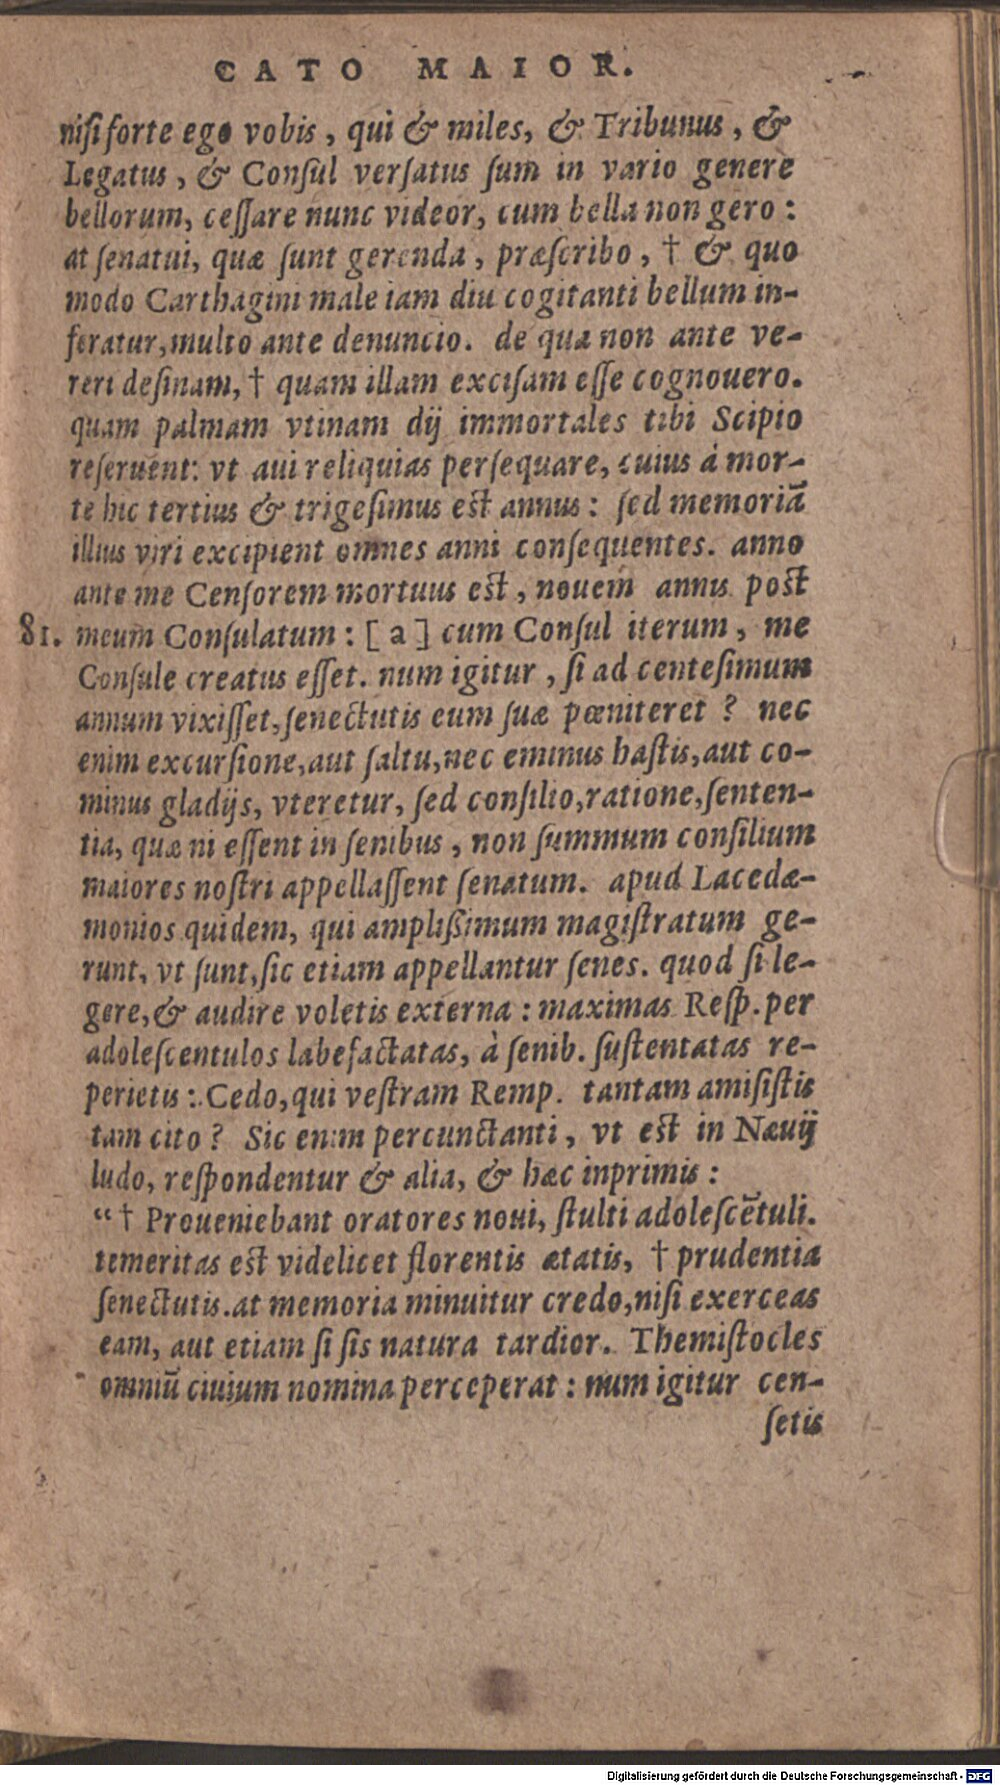 CATO MAIOR.
nisi forte ego vobis, qui & miles, & Tribunus, &
Legatus, & Consul versatus sum in vario genere
bellorum, cessare nunc videor, cum bella non gero:
at senatui, quæ sunt gerenda, præscribo, † & quo
modo Carthagini male iam diu cogitanti bellum in-
feratur, multo ante denuncio. de qua non ante ve-
reri desinam, † quam illam excisam esse cognouero.
quam palmam vtinam dij immortales tibi Scipio
reseruent: vt aui reliquias persequare, cuius à mor-
te hic tertius & trigesimus est annus: sed memoriā
illius viri excipient omnes anni consequentes. anno
ante me Censorem mortuus est, nouem annis post
81. meum Consulatum: [a] cum Consul iterum, me
Consule creatus esset. num igitur, si ad centesimum
annum vixisset, senectutis eum suæ pœniteret? nec
enim excursione, aut saltu, nec eminus hastis, aut co-
minus gladijs, vteretur, sed consilio, ratione, senten-
tia, quæ ni essent in senibus, non summum consilium
maiores nostri appellassent senatum. apud Lacedæ-
monios quidem, qui amplißimum magistratum ge-
runt, vt sunt, sic etiam appellantur senes. quod si le-
gere, & audire voletis externa: maximas Resp. per
adolescentulos labefactatas, à senib. sustentatas re-
perietis: Cedo, qui vestram Remp. tantam amisistis
tam cito? Sic enim percunctanti, vt est in Næuij
ludo, respondentur & alia, & hæc inprimis:
“† Proueniebant oratores noui, stulti adolescētuli.
temeritas est videlicet florentis ætatis, † prudentia
senectutis. at memoria minuitur credo, nisi exerceas
eam, aut etiam si sis natura tardior. Themistocles
omniū ciuium nomina perceperat: num igitur cen-
setis
Digitalisierung gefördert durch die Deutsche Forschungsgemeinschaft - DFG